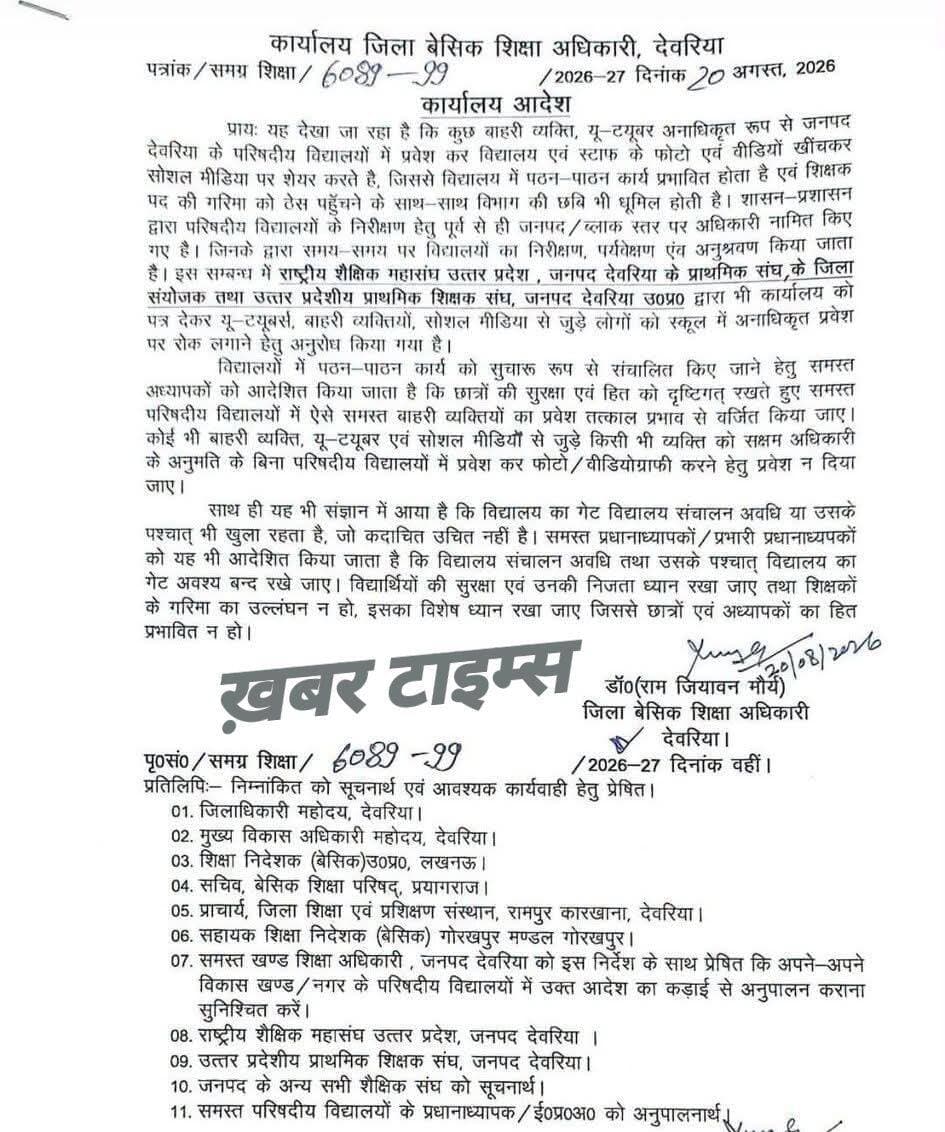 कार्यालय जिला बेसिक शिक्षा अधिकारी, देवरिया
पत्रांक/समग्र शिक्षा/ 6089-99 /2026-27 दिनांक 20 अगस्त, 2026
कार्यालय आदेश
प्रायः यह देखा जा रहा है कि कुछ बाहरी व्यक्ति, यू-टयूबर अनाधिकृत रूप से जनपद
देवरिया के परिषदीय विद्यालयों में प्रवेश कर विद्यालय एवं स्टाफ के फोटो एवं वीडियों खींचकर
सोशल मीडिया पर शेयर करते है, जिससे विद्यालय में पठन-पाठन कार्य प्रभावित होता है एवं शिक्षक
पद की गरिमा को ठेस पहुँचने के साथ-साथ विभाग की छवि भी धूमिल होती है। शासन-प्रशासन
द्वारा परिषदीय विद्यालयों के निरीक्षण हेतु पूर्व से ही जनपद/ब्लाक स्तर पर अधिकारी नामित किए
गए है। जिनके द्वारा समय-समय पर विद्यालयों का निरीक्षण, पर्यवेक्षण एंव अनुश्रवण किया जाता
है। इस सम्बन्ध में राष्ट्रीय शैक्षिक महासंघ उत्तर प्रदेश , जनपद देवरिया के प्राथमिक संघ,के जिला
संयोजक तथा उत्तर प्रदेशीय प्राथमिक शिक्षक संघ, जनपद देवरिया उ0प्र0 द्वारा भी कार्यालय को
पत्र देकर यू-टयूबर्स, बाहरी व्यक्तियो, सोशल मीडिया से जुड़े लोगों को स्कूल में अनाधिकृत प्रवेश
पर रोक लगाने हेतु अनुरोध किया गया है।
विद्यालयों में पठन-पाठन कार्य को सुचारू रूप से संचालित किए जाने हेतु समस्त
अध्यापकों को आदेशित किया जाता है कि छात्रों की सुरक्षा एवं हित को दृष्टिगत् रखते हुए समस्त
परिषदीय विद्यालयों में ऐसे समस्त बाहरी व्यक्तियों का प्रवेश तत्काल प्रभाव से वर्जित किया जाए।
कोई भी बाहरी व्यक्ति, यू-टयूबर एवं सोशल मीडियों से जुड़े किसी भी व्यक्ति को सक्षम अधिकारी
के अनुमति के बिना परिषदीय विद्यालयों में प्रवेश कर फोटो/वीडियोग्राफी करने हेतु प्रवेश न दिया
जाए।
साथ ही यह भी संज्ञान में आया है कि विद्यालय का गेट विद्यालय संचालन अवधि या उसके
पश्चात् भी खुला रहता है, जो कदाचित उचित नहीं है। समस्त प्रधानाध्यापकों/प्रभारी प्रधानाध्यपकों
को यह भी आदेशित किया जाता है कि विद्यालय संचालन अवधि तथा उसके पश्चात् विद्यालय का
गेट अवश्य बन्द रखे जाए। विद्यार्थियों की सुरक्षा एवं उनकी निजता ध्यान रखा जाए तथा शिक्षकों
के गरिमा का उल्लंघन न हो, इसका विशेष ध्यान रखा जाए जिससे छात्रों एवं अध्यापकों का हित
प्रभावित न हो।
20/08/2026
ख़बर टाइम्स
डॉ0(राम जियावन मौर्य)
जिला बेसिक शिक्षा अधिकारी
देवरिया।
पृ0सं0/समग्र शिक्षा/ 6089-99 /2026-27 दिनांक वहीं।
प्रतिलिपिः- निम्नांकित को सूचनार्थ एवं आवश्यक कार्यवाही हेतु प्रेषित।
01. जिलाधिकारी महोदय, देवरिया।
02. मुख्य विकास अधिकारी महोदय, देवरिया।
03. शिक्षा निदेशक (बेसिक)उ0प्र0, लखनऊ।
04. सचिव, बेसिक शिक्षा परिषद्, प्रयागराज।
05. प्राचार्य, जिला शिक्षा एवं प्रशिक्षण संस्थान, रामपुर कारखाना, देवरिया।
06. सहायक शिक्षा निदेशक (बेसिक) गोरखपुर मण्डल गोरखपुर।
07. समस्त खण्ड शिक्षा अधिकारी , जनपद देवरिया को इस निर्देश के साथ प्रेषित कि अपने-अपने
विकास खण्ड/नगर के परिषदीय विद्यालयों में उक्त आदेश का कड़ाई से अनुपालन कराना
सुनिश्चित करें।
08. राष्ट्रीय शैक्षिक महासंघ उत्तर प्रदेश, जनपद देवरिया ।
09. उत्तर प्रदेशीय प्राथमिक शिक्षक संघ, जनपद देवरिया।
10. जनपद के अन्य सभी शैक्षिक संघ को सूचनार्थ।
11. समस्त परिषदीय विद्यालयों के प्रधानाध्यापक/ई0प्र0अ0 को अनुपालनार्थ।